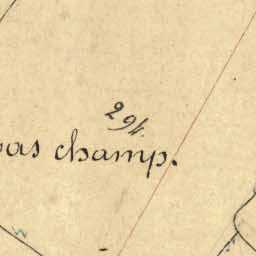 294.
bas champ.